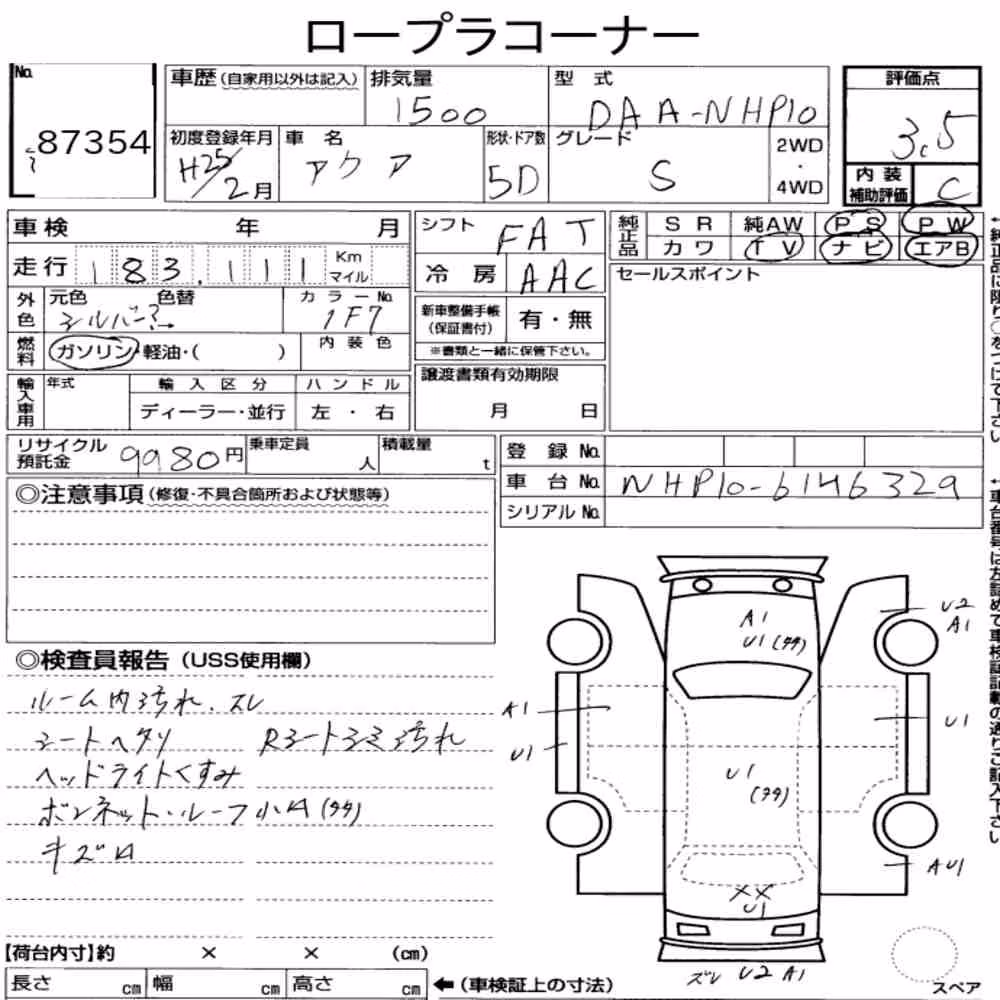 ロープラコーナー
No.
87354
車歴(自家用以外は記入)
排気量
1500
型 式
DAA-NHP10
評価点
3.5
初度登録年月
H25/2月
車 名
アクア
形状・ドア数
5D
グレード
S
2WD
・
4WD
内 装
補助評価
C
車検 年 月
シフト
FAT
純正品
SR 純AW PS PW
カワ TV ナビ エアB
走行 183,111 Km
マイル
冷 房
AAC
セールスポイント
外色
元色 色替
シルバー
カラーNo.
1F7
新車整備手帳
(保証書付)
有・無
燃料
ガソリン・軽油・( )
内 装 色
※書類と一緒に保管下さい。
輸入車用
年式
輸 入 区 分
ハ ン ド ル
ディーラー・並行
左 ・ 右
譲渡書類有効期限
月 日
リサイクル
預託金
9980円
乗車定員
人
積載量
t
登 録 No.
車 台 No.
NHP10-6146329
シリアル No.
◎注意事項(修復・不具合箇所および状態等)
◎検査員報告(USS使用欄)
ルーム内汚れ.スレ
シートヘタリ Rシートシミ汚れ
ヘッドライトくすみ
ボンネット・ルーフ小凹(多数)
キズ凹
A1
U1
U2
A1
A1
U1
U1
U1
AU1
XX
U1
ズレ U2 A1
【荷台内寸】約 × × (cm)
長さ cm 幅 cm 高さ cm
←(車検証上の寸法)
スペア
←純正品に限り○をつけて下さい
←車台番号は左詰めで車検証記載の通りご記入下さい